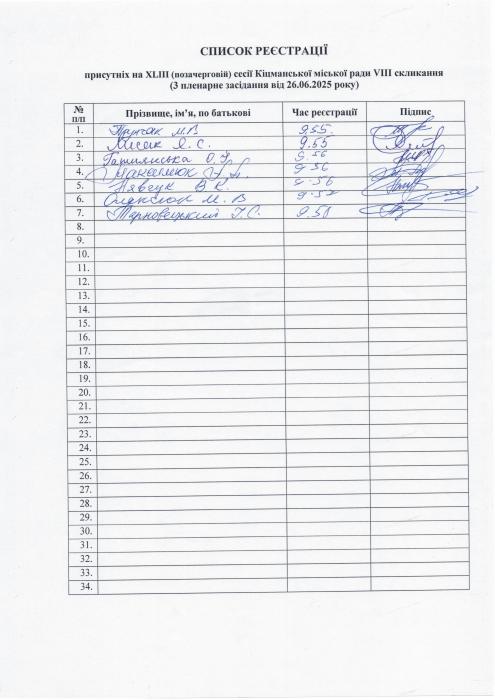 СПИСОК РЕЄСТРАЦІЇ
присутніх на XLIII (позачерговій) сесії Кіцманської міської ради VIII скликання
(3 пленарне засідання від 26.06.2025 року)
№ п/п Прізвище, ім'я, по батькові Час реєстрації Підпис
1. М.В 9.55.
2. Лісик Я. С. 9.55
3. О. 9.56
4. 9.56
5. В. К. 9.56
6. М. В 9.57
7. Тарновецький Г.С. 9.58
8.
9.
10.
11.
12.
13.
14.
15.
16.
17.
18.
19.
20.
21.
22.
23.
24.
25.
26.
27.
28.
29.
30.
31.
32.
33.
34.